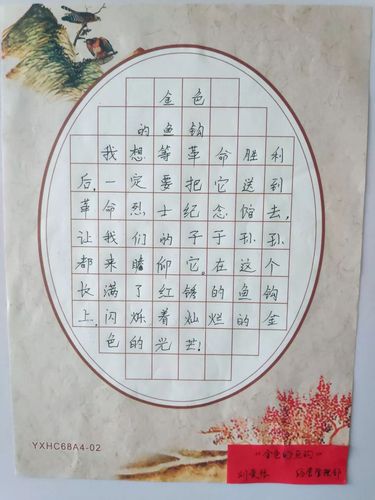 金色
的鱼钩
我想等革命胜利
后,一定要把它送到
革命烈士纪念馆去,
让我们的子子孙孙
都来瞻仰它。在这个
长满了红锈的鱼钩
上,闪烁着灿烂的金
色的光芒!
YXHC68A4-02
“金色的鱼钩”